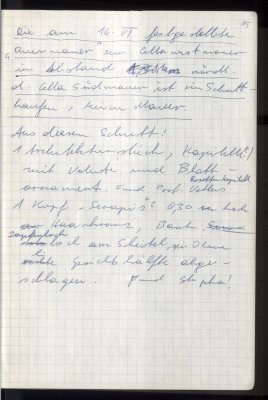 15
Die am 16. VI festgestellte
„Quermauer" zur Cella westmauer
in Abstand nördl.
d. Cella Südmauer ist ein Schutt-
haufen, keine Mauer.
Aus diesem Schutt:
1 Architekturstück, Kapitell(?)
mit Volute und Blatt-
ornament. Fund Prof Vetters
1 Kopf - Serapis? 0,30 m hoch
Haarkranz, Bart
Zapfenloch
loch am Scheitel,
Gesichtshälfte abge-
schlagen. Fund